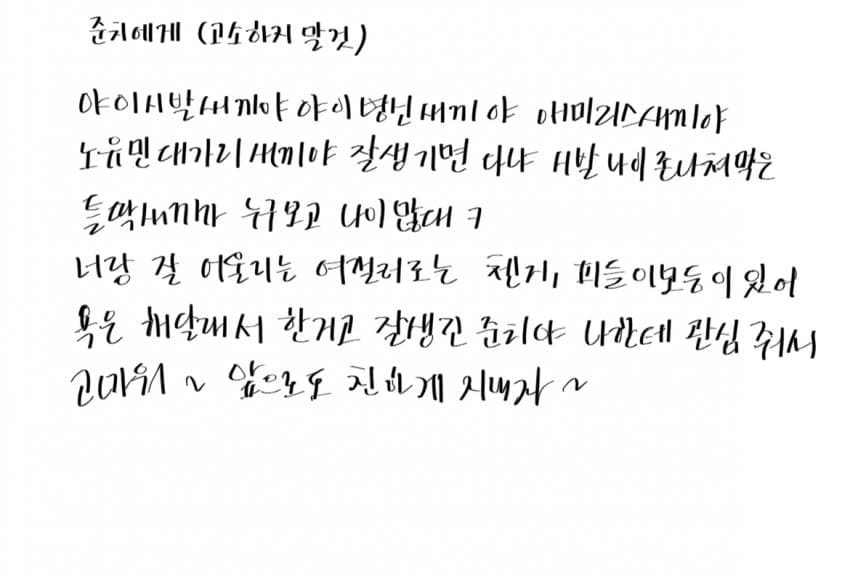 준치에게 (고소하지 말것)
야이시발새끼야 야이병신새끼야 애미리스새끼야
노유민대가리새끼야 잘생기면 다냐 시발 나이 존나쳐먹은
틀딱새끼가 누구보고 나이많대 ㅋ
너랑 잘 어울리는 여컬러로는 첸거, 피들이모등이 있어
욕은 해달래서 한거고 잘생긴 준치야 나한테 관심 줘서
고마워 ~ 앞으로도 친하게 지내자 ~